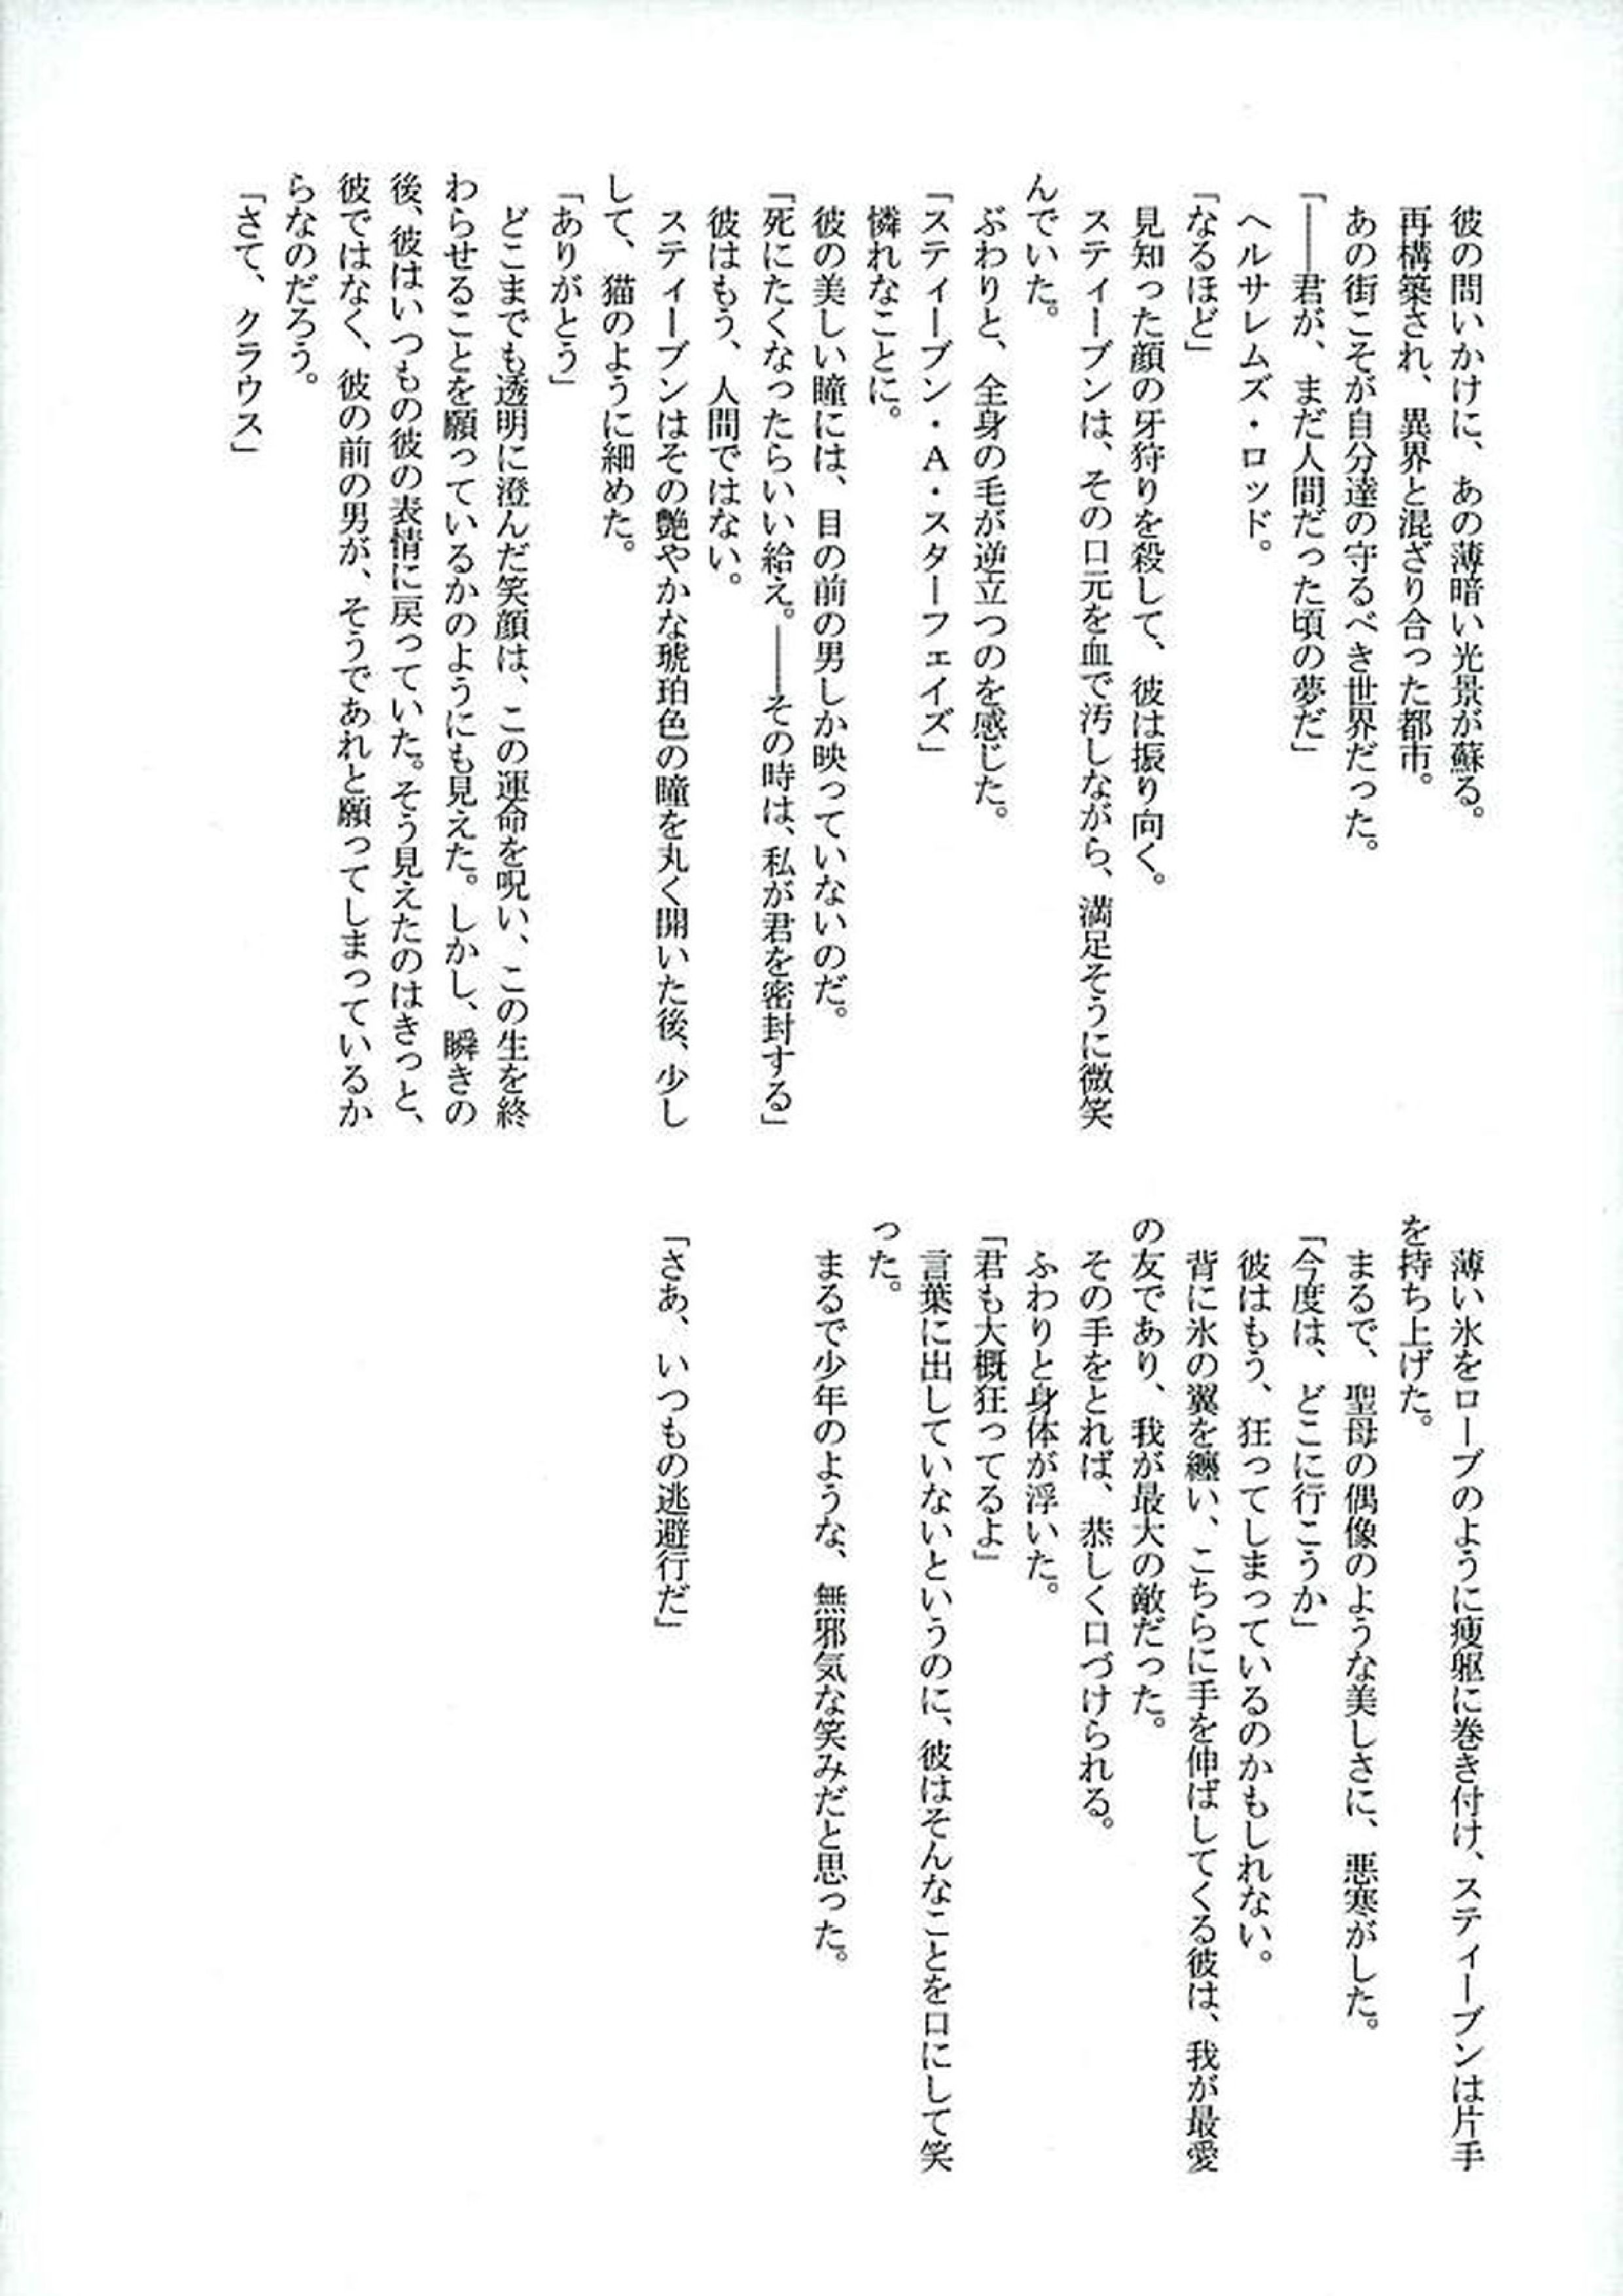 彼の問いかけに、あの薄暗い光景が蘇る。
再構築され、異界と混ざり合った都市。
あの街こそが自分達の守るべき世界だった。
「――君が、まだ人間だった頃の夢だ」
ヘルサレムズ・ロッド。
「なるほど」
見知った顔の牙狩りを殺して、彼は振り向く。
スティーブンは、その口元を血で汚しながら、満足そうに微笑
んでいた。
ぶわりと、全身の毛が逆立つのを感じた。
「スティーブン・A・スターフェイズ」
憐れなことに。
彼の美しい瞳には、目の前の男しか映っていないのだ。
「死にたくなったらいい給え。――その時は、私が君を密封する」
彼はもう、人間ではない。
スティーブンはその艶やかな琥珀色の瞳を丸く開いた後、少し
して、猫のように細めた。
「ありがとう」
どこまでも透明に澄んだ笑顔は、この運命を呪い、この生を終
わらせることを願っているかのようにも見えた。しかし、瞬きの
後、彼はいつもの彼の表情に戻っていた。そう見えたのはきっと、
彼ではなく、彼の前の男が、そうであれと願ってしまっているか
らなのだろう。
「さて、クラウス」
薄い氷をローブのように痩躯に巻き付け、スティーブンは片手
を持ち上げた。
まるで、聖母の偶像のような美しさに、悪寒がした。
「今度は、どこに行こうか」
彼はもう、狂ってしまっているのかもしれない。
背に氷の翼を纏い、こちらに手を伸ばしてくる彼は、我が最愛
の友であり、我が最大の敵だった。
その手をとれば、恭しく口づけられる。
ふわりと身体が浮いた。
「君も大概狂ってるよ」
言葉に出していないというのに、彼はそんなことを口にして笑
った。
まるで少年のような、無邪気な笑みだと思った。
「さあ、いつもの逃避行だ」